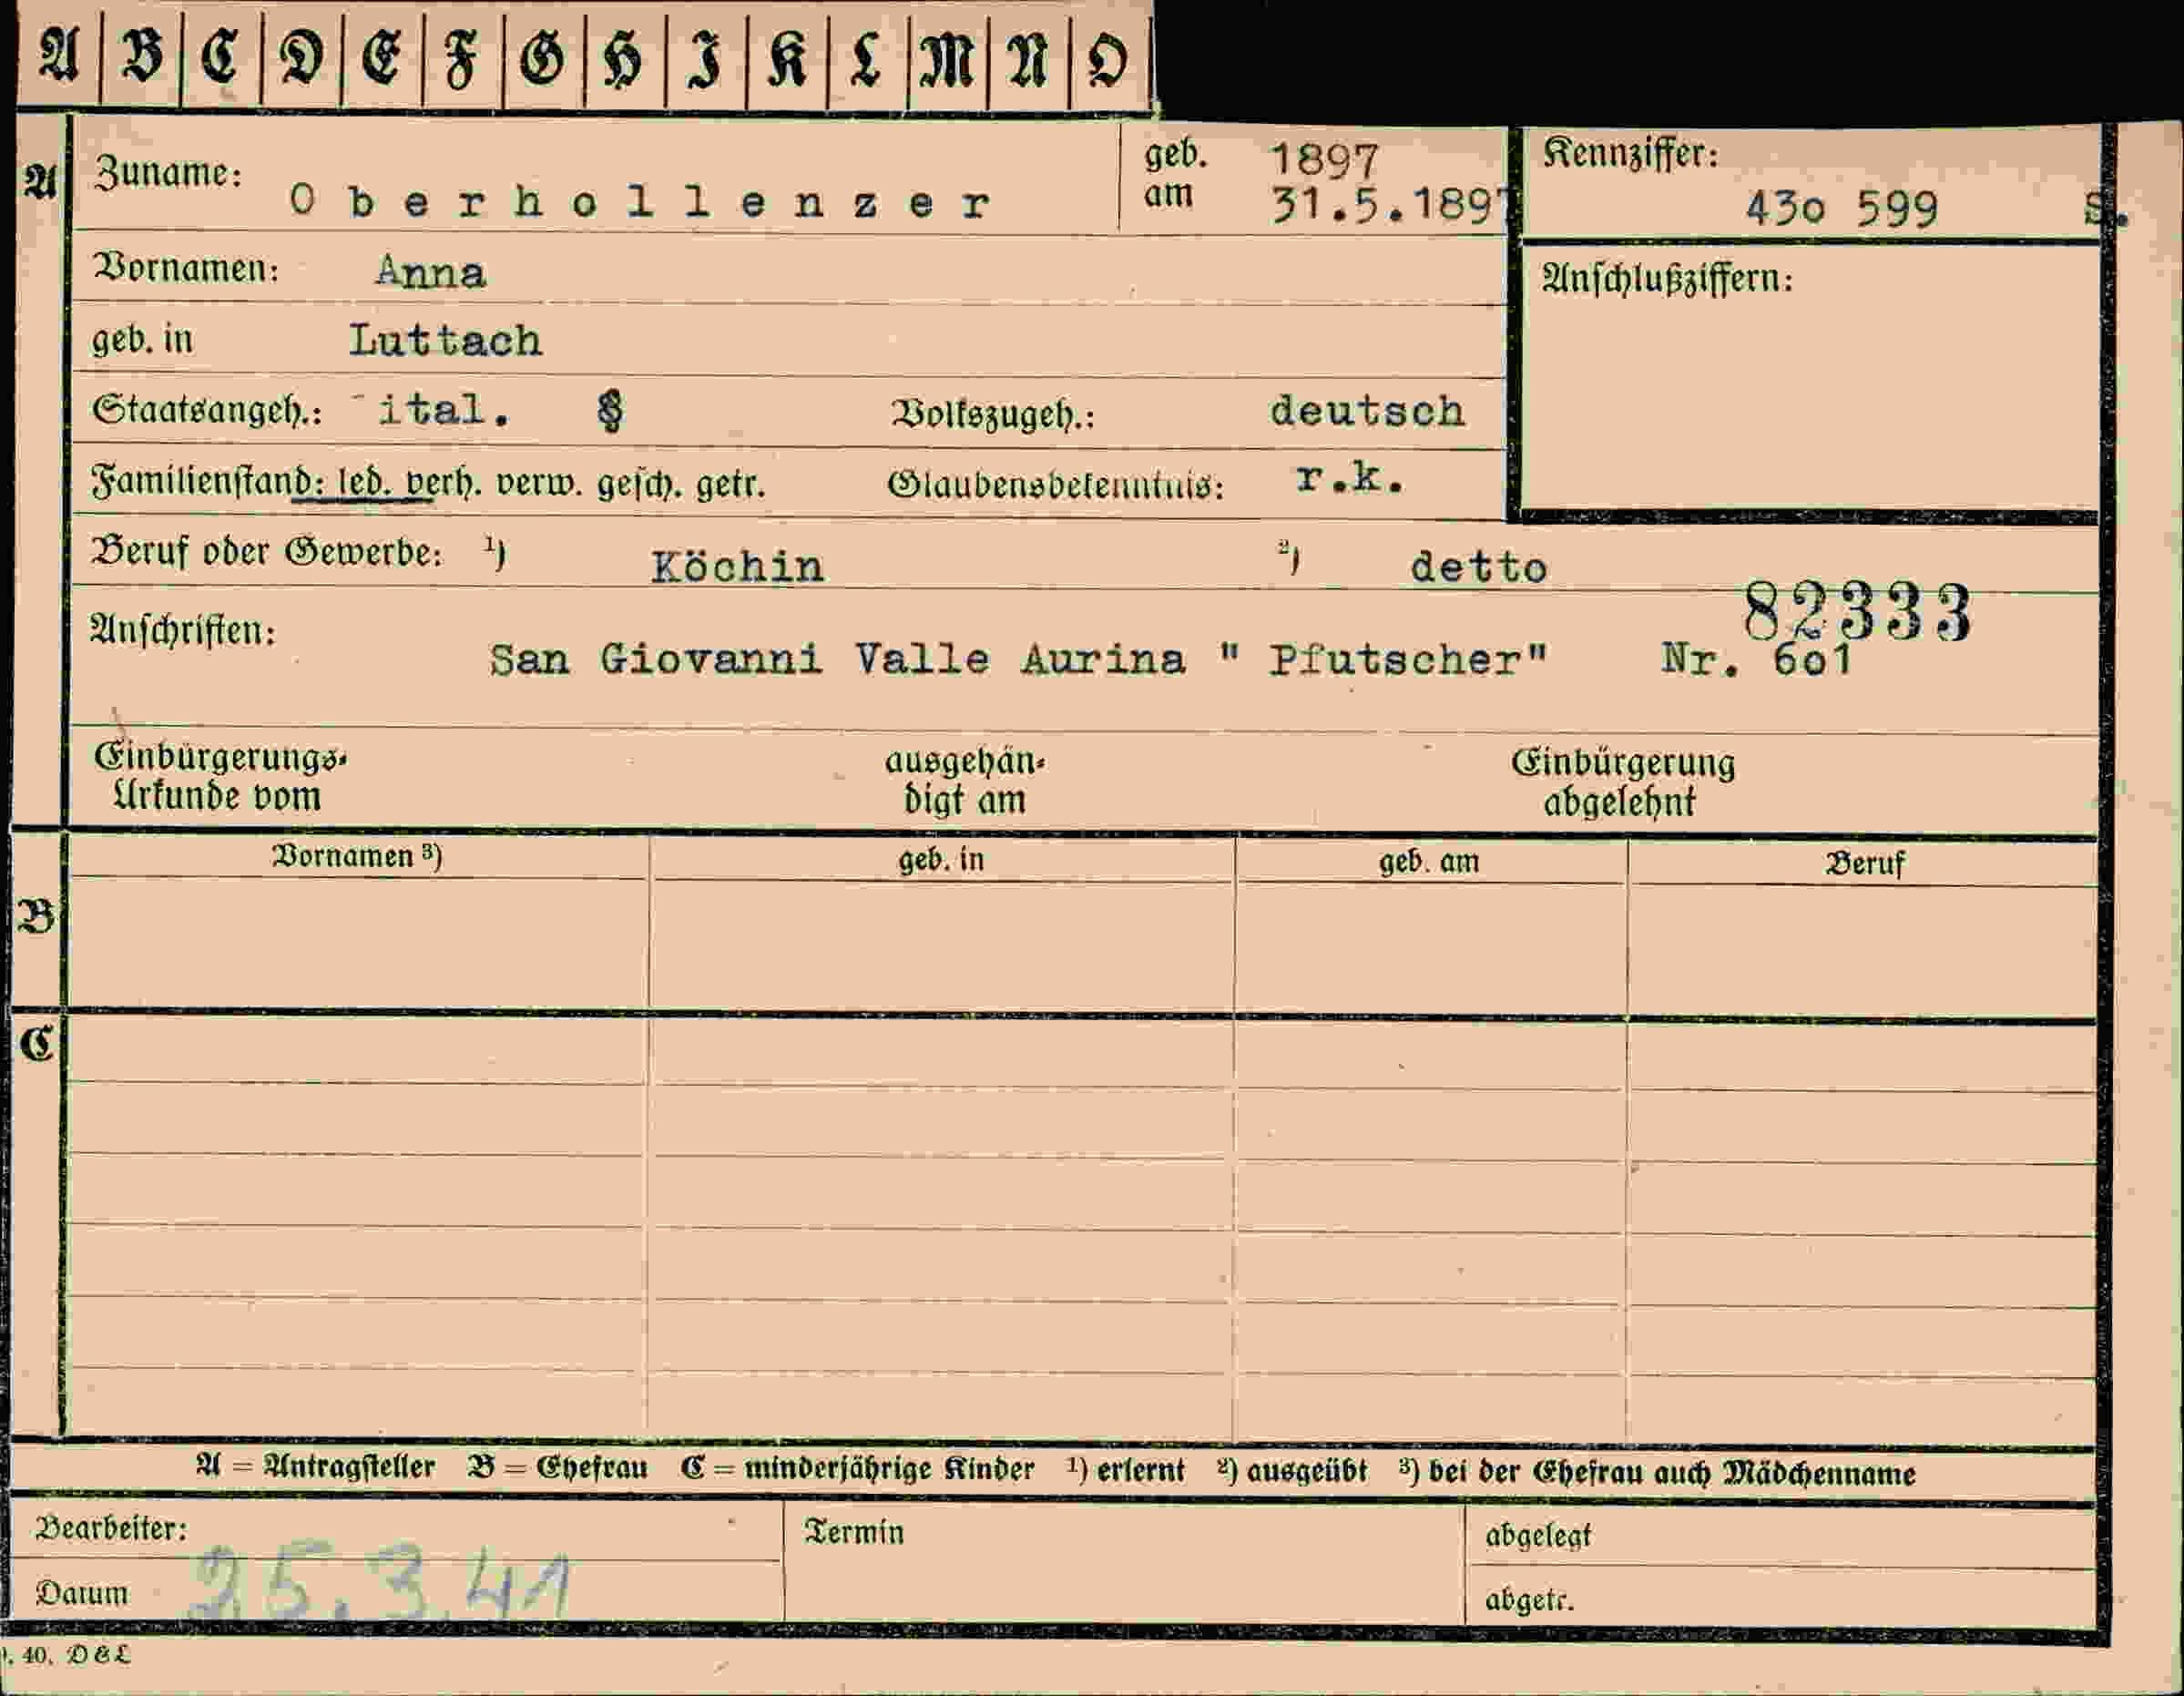 A B C D E F G H I K L M N O
A
Zuname: Oberhollenzer
geb. 1897
am 31.5.1897
Kennziffer:
43o 599 S.
Vornamen: Anna
Anschlußziffern:
geb. in Luttach
Staatsangeh.: ital. § Volkszugeh.: deutsch
Familienstand: led. verh. verw. gesch. getr. Glaubensbekenntnis: r.k.
Beruf oder Gewerbe: 1) Köchin 2) detto
82333
Anschriften: San Giovanni Valle Aurina " Pfutscher" Nr. 6o1
Einbürgerungs- ausgehän- Einbürgerung
Urkunde vom digt am abgelehnt
Vornamen 3) geb. in geb. am Beruf
B
C
A = Antragsteller B = Ehefrau C = minderjährige Kinder 1) erlernt 2) ausgeübt 3) bei der Ehefrau auch Mädchenname
Bearbeiter: Termin abgelegt
Datum 25.3.41 abgetr.
40. D&L